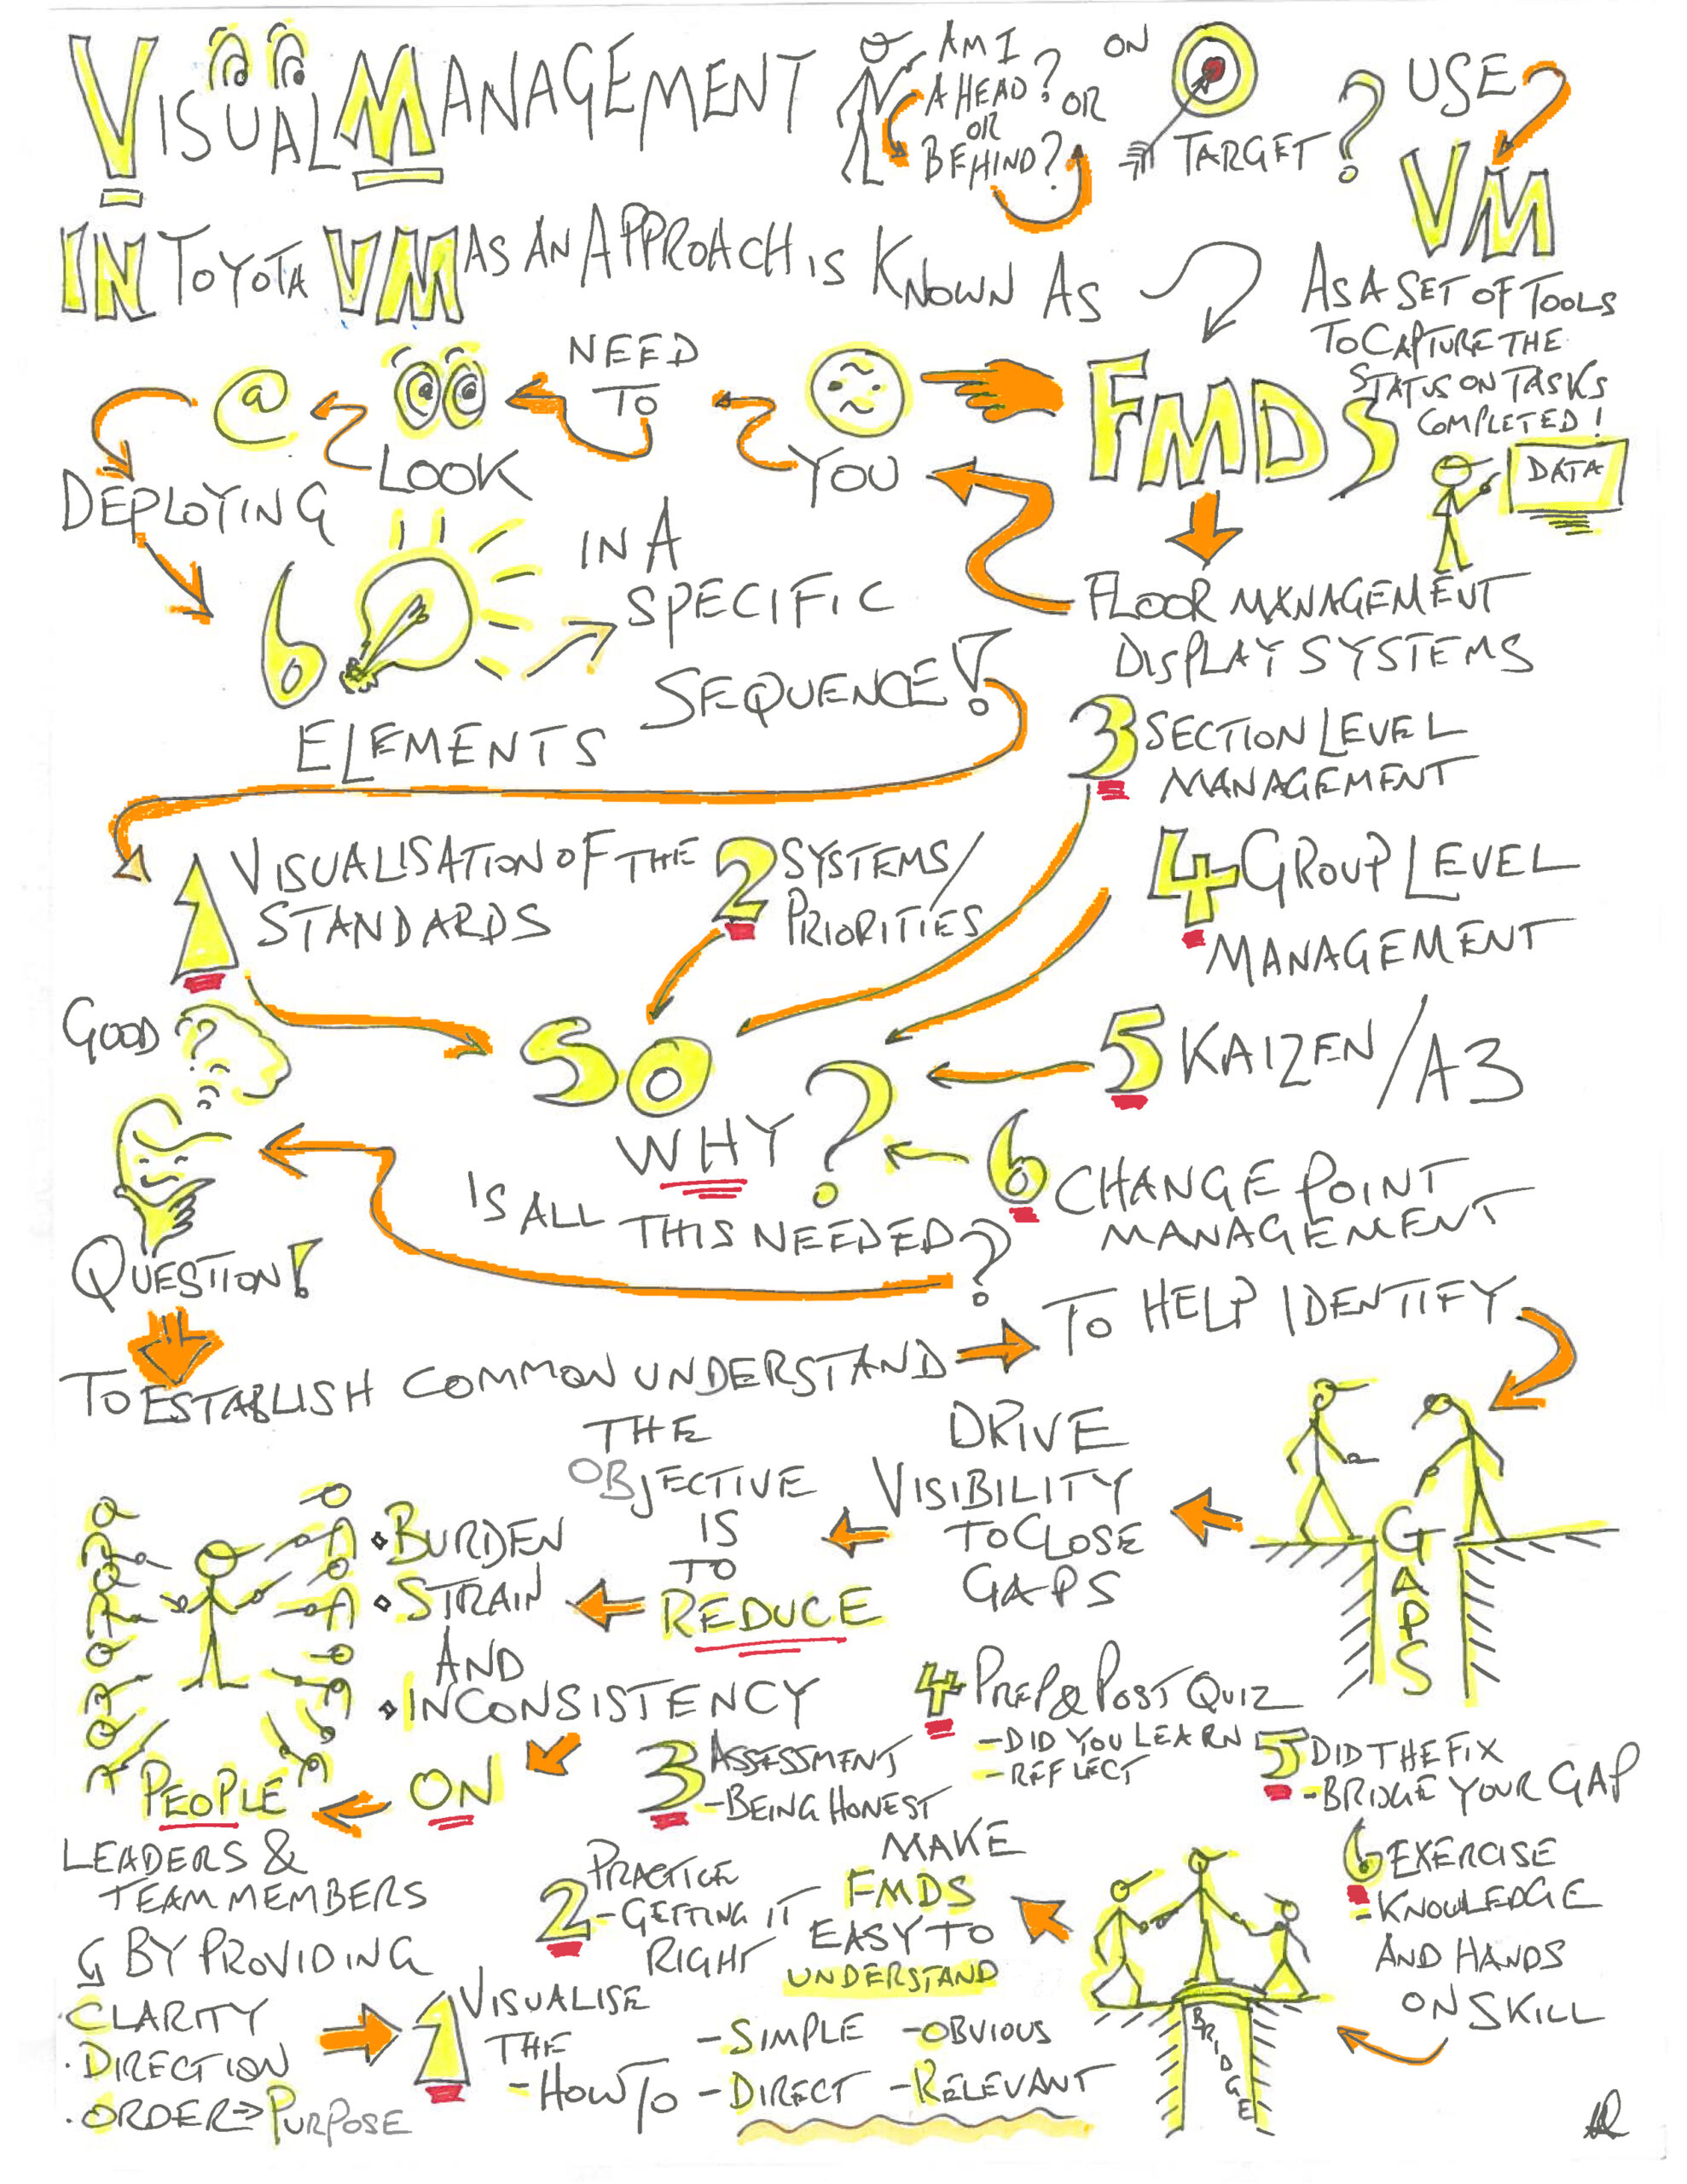 VISUAL MANAGEMENT
AM I
AHEAD?
OR
BEHIND?
OR
ON
TARGET?
USE
VM
AS A SET OF TOOLS
TO CAPTURE THE
STATUS ON TASKS
COMPLETED!
DATA
IN TOYOTA VM AS AN APPROACH IS KNOWN AS
FMDS
FLOOR MANAGEMENT
DISPLAY SYSTEMS
YOU
NEED
TO
LOOK
@
DEPLOYING
6
ELEMENTS
IN A
SPECIFIC
SEQUENCE!
1 VISUALISATION OF THE
STANDARDS
2 SYSTEMS/
PRIORITIES
3 SECTION LEVEL
MANAGEMENT
4 GROUP LEVEL
MANAGEMENT
5 KAIZEN/A3
6 CHANGE POINT
MANAGEMENT
SO
WHY?
IS ALL THIS NEEDED?
GOOD
??
QUESTION!
TO ESTABLISH COMMON UNDERSTAND
TO HELP IDENTIFY
GAPS
DRIVE
VISIBILITY
TO CLOSE
GAPS
THE
OBJECTIVE
IS
TO
REDUCE
• BURDEN
• STRAIN
AND
• INCONSISTENCY
ON
PEOPLE
LEADERS &
TEAM MEMBERS
BY PROVIDING
· CLARITY
· DIRECTION
· ORDER ⇒ PURPOSE
1 VISUALISE
THE
- HOW TO
2 PRACTICE
- GETTING IT
RIGHT
3 ASSESSMENT
- BEING HONEST
4 PREP & POST QUIZ
- DID YOU LEARN
- REFLECT
5 DID THE FIX
- BRIDGE YOUR GAP
6 EXERCISE
- KNOWLEDGE
AND HANDS
ON SKILL
BRIDGE
MAKE
FMDS
EASY TO
UNDERSTAND
- SIMPLE - OBVIOUS
- DIRECT - RELEVANT